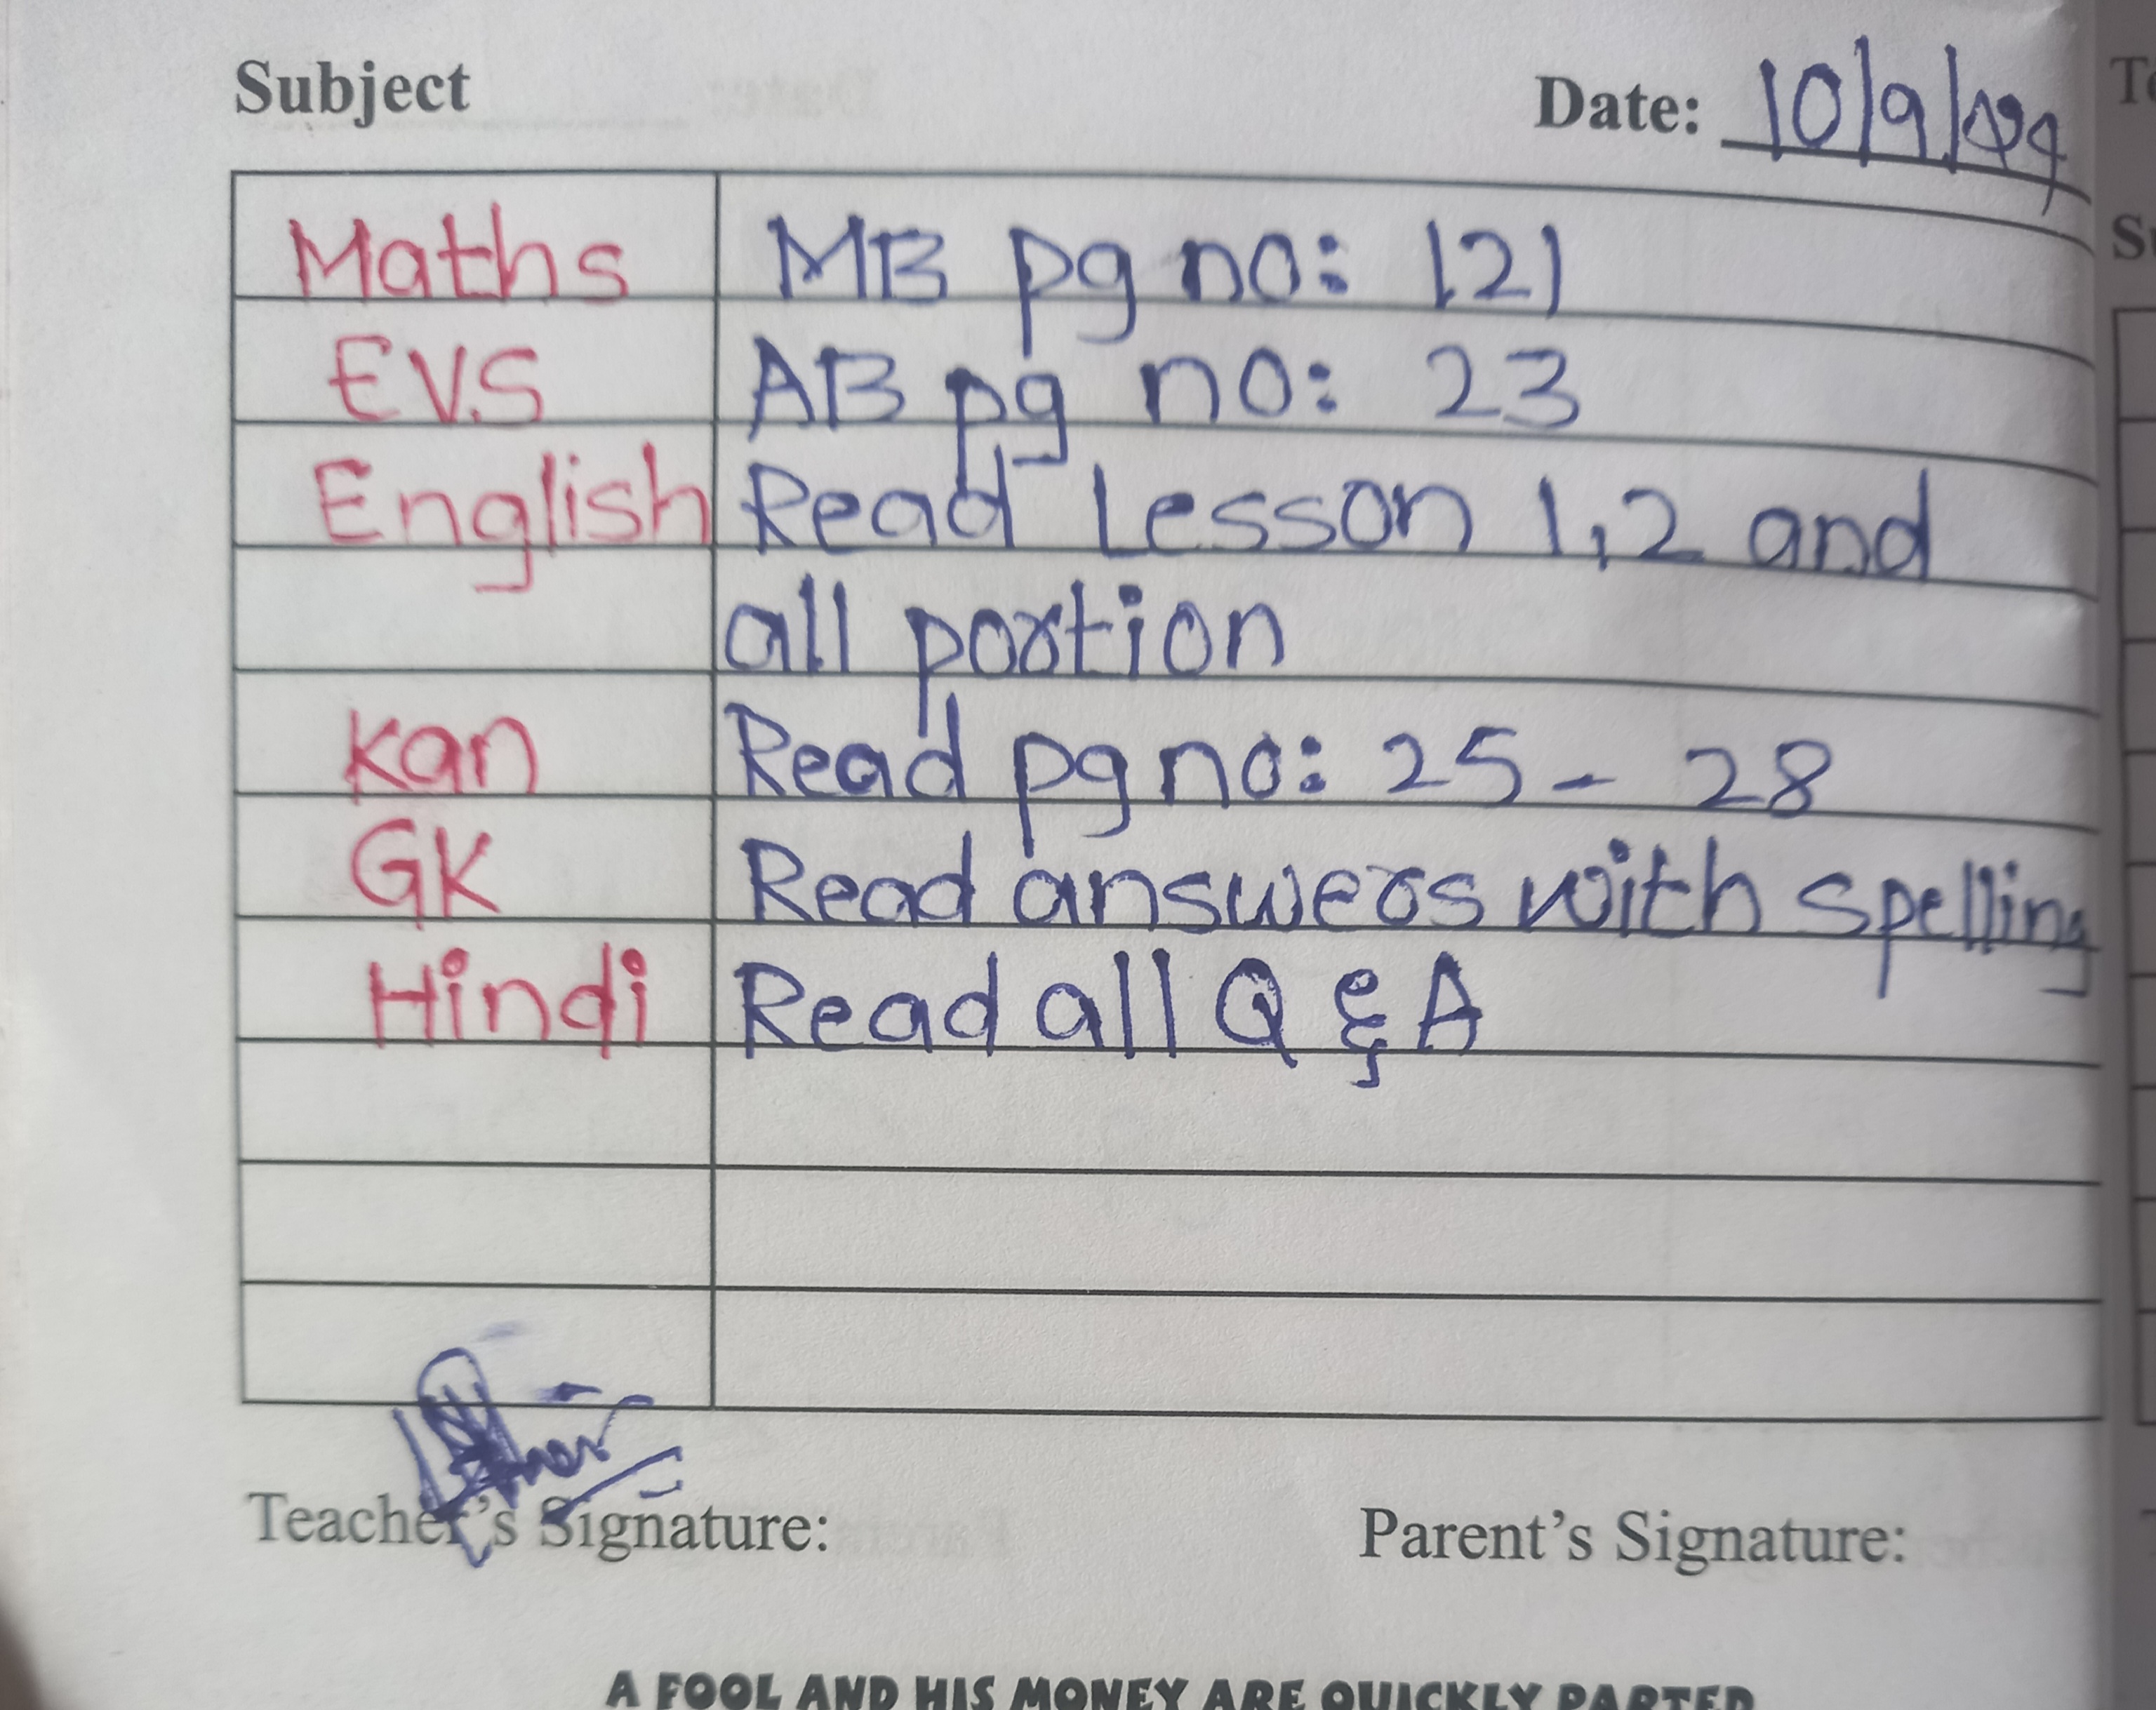 Subject Date: 10/9/24
Maths MB pg no: 121
EV.S AB pg no: 23
English Read Lesson 1,2 and
all portion
Kan Read pg no: 25 - 28
GK Read answers with spelling
Hindi Read all Q & A
Teacher's Signature: Parent's Signature:
A FOOL AND HIS MONEY ARE QUICKLY PARTED